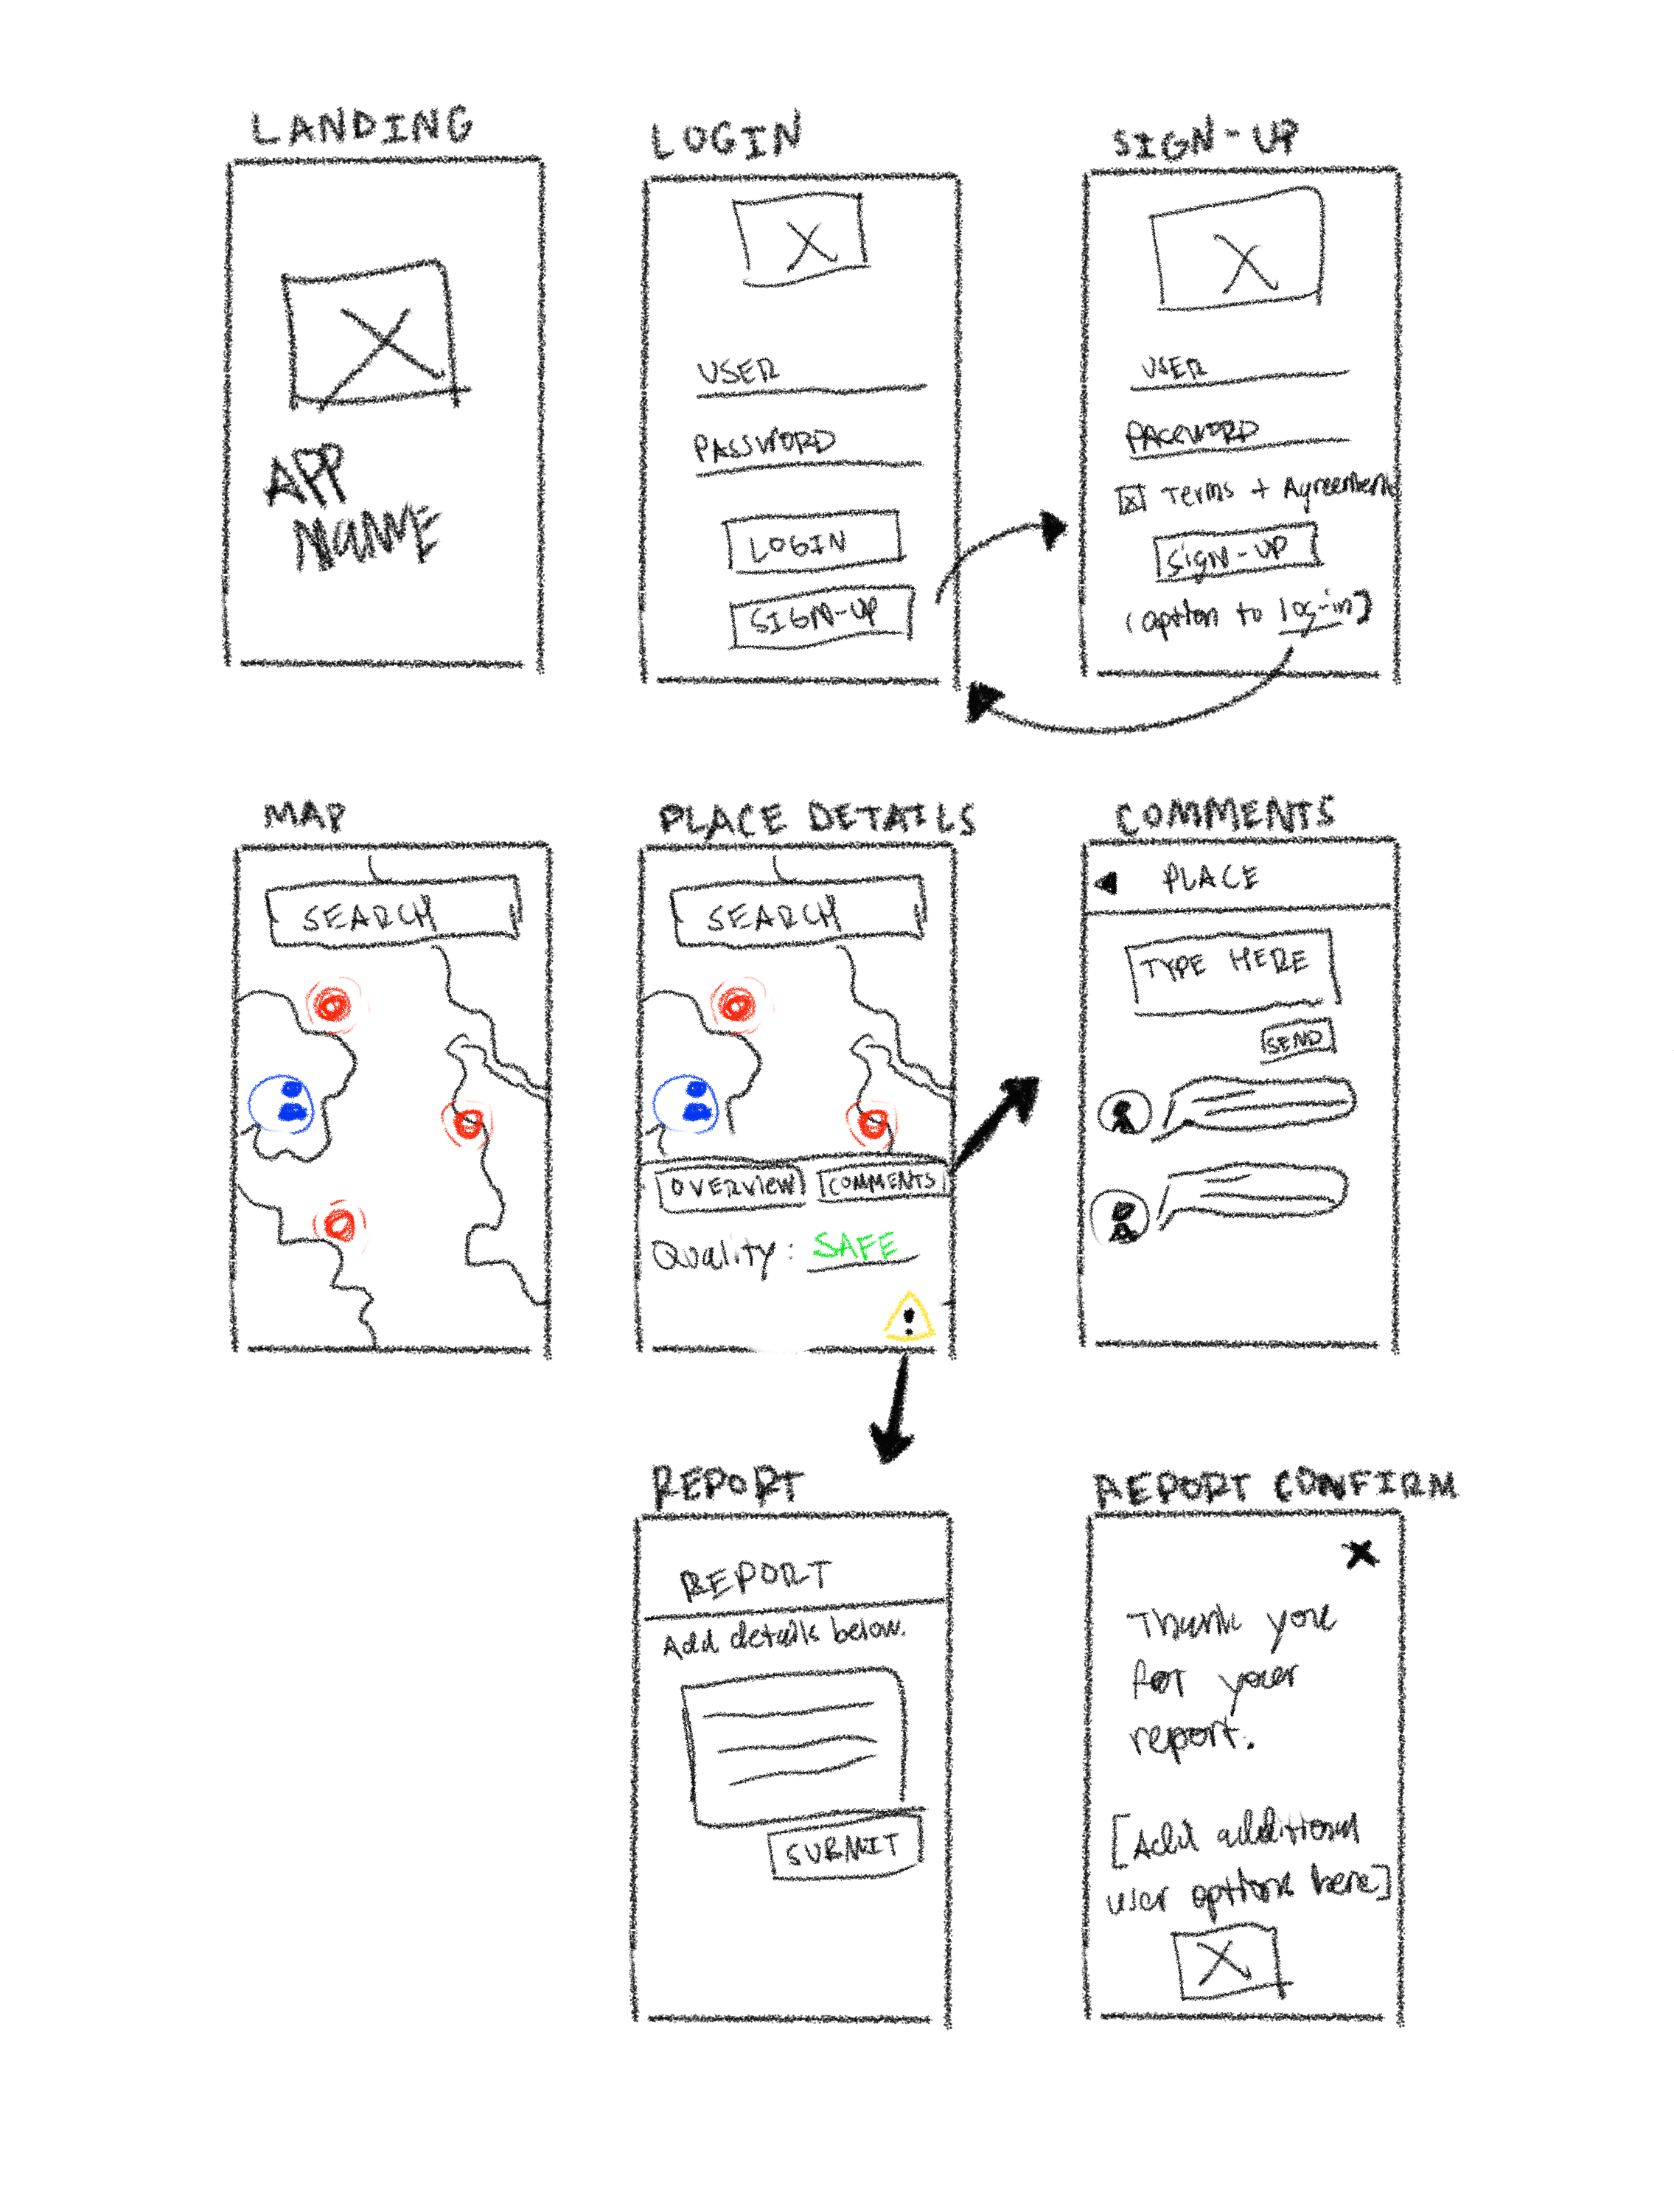 LANDING
APP
NAME
LOGIN
USER
PASSWORD
LOGIN
SIGN-UP
SIGN-UP
USER
PASSWORD
Terms + Agreement
SIGN-UP
(option to log-in)
MAP
SEARCH
PLACE DETAILS
SEARCH
OVERVIEW COMMENTS
Quality: SAFE
!
COMMENTS
PLACE
TYPE HERE
SEND
REPORT
REPORT
Add details below.
SUBMIT
REPORT CONFIRM
Thank you
for your
report.
[Add additional
user options here]